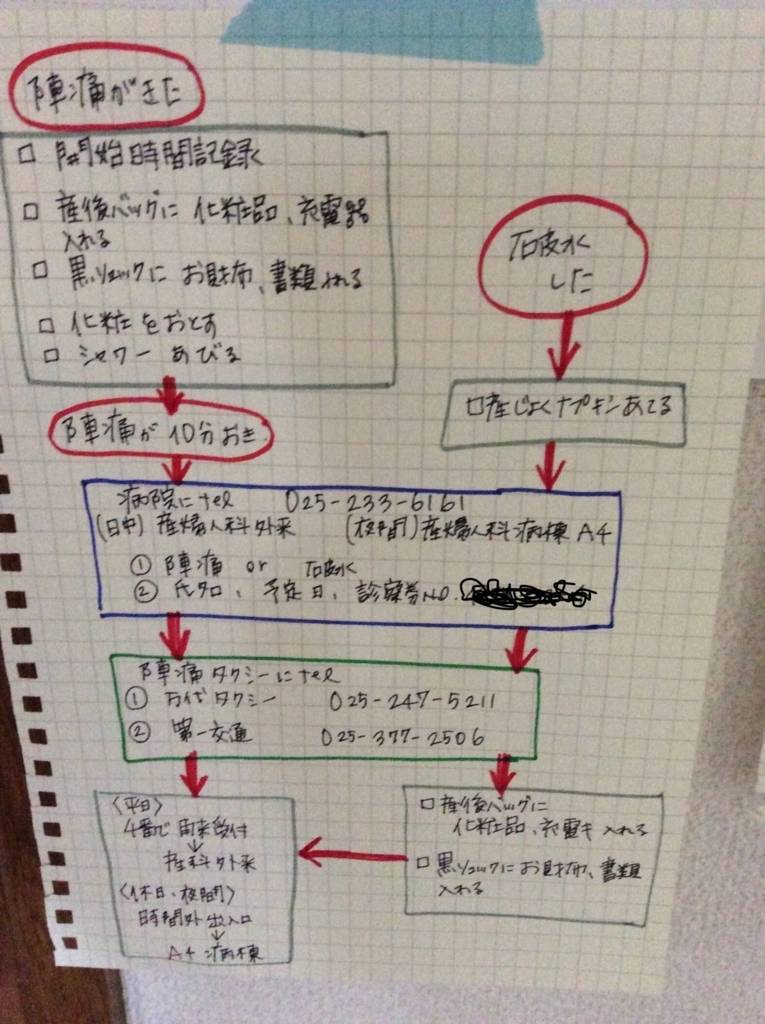 陣痛がきた
□ 開始時間記録
□ 産後バッグに 化粧品、充電器
入れる
□ 黒リュックに お財布、書類入れる
□ 化粧をおとす
□ シャワーあびる
陣痛が10分おき
破水
した
□産じょくナプキンあてる
病院にtel 025-233-6161
(日中)産婦人科外来 (夜間)産婦人科病棟 A4
① 陣痛 or 破水
② 氏名、予定日、診察券No.
陣痛タクシーにtel
① 万代タクシー 025-247-5211
② 第一交通 025-377-2506
〈平日〉
4番で 再来受付
↓
産科外来
〈休日、夜間〉
時間外出入口
↓
A4病棟
□ 産後バッグに
化粧品、充電キ 入れる
□ 黒リュックにお財布、書類
入れる